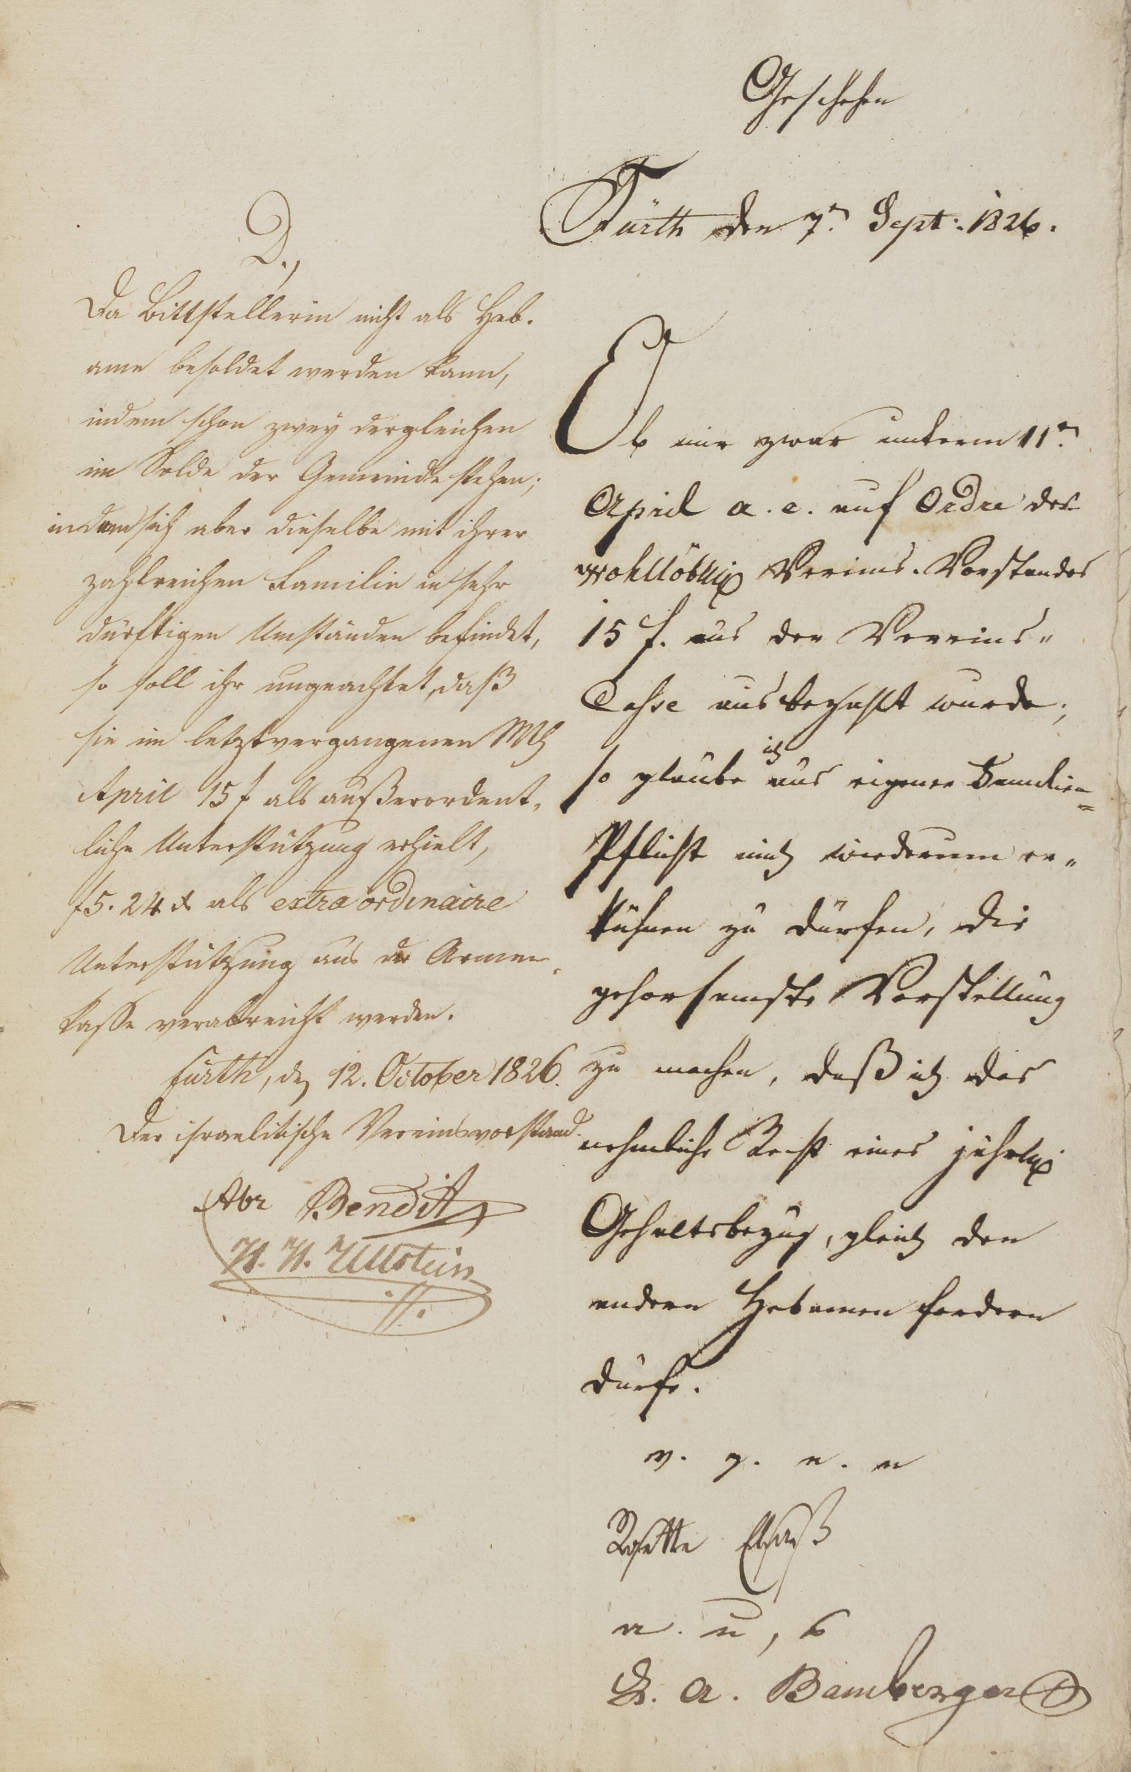 Geschehen
Fürth den 7.n Sept: 1826.
Ob mir zwar unterm 11n
April a. c. auf Ordre des
wohllöbl. Vereins-Vorstandes
15 f. aus der Vereins-
Casse ausbezahlt wurde;
so glaube ich aus eigener Familien-
Pflicht mich wiederum er-
kühnen zu dürfen, die
gehorsamste Vorstellung
zu machen, daß ich das
nehmliche Recht eines jährl.
Gehaltsbezug, gleich den
andern Hebamen fordern
dürfe.
v. g. u. u
Rosette Elsaß
a. u, s
A. Bamberger
D.,
Da Bittstellerin nicht als Heb-
ame besoldet werden kann,
indem schon zwey dergleichen
im Solde der Gemeinde stehen;
indem sich aber dieselbe mit ihrer
zahlreichen Familie in sehr
dürftigen Umständen befindet,
so soll ihr ungeachtet, daß
sie im letztvergangenen Mts
April 15 f als außerordent-
liche Unterstützung erhielt,
f 5. 24 x als extraordinaire
Unterstützung aus der Armen-
kasse verabreicht werden.
Fürth, den 12. October 1826.
Der israelitische Vereinsvorstand.
Abr Bendit
H. H. Ullstein